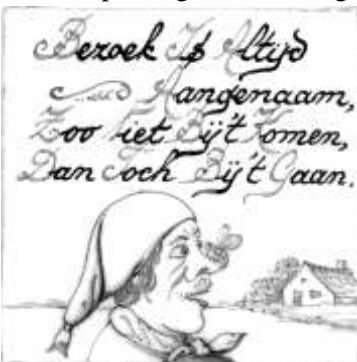 Bezoek Is Altyd
Aangenaam,
Zoo Niet Bÿ't Komen,
Dan Toch Bÿ't Gaan.